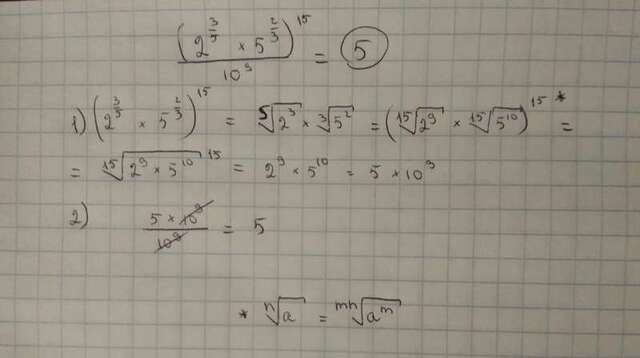 (2^{3/5} × 5^{2/3})^{15} / 10^9 = 5
1) (2^{3/5} × 5^{2/3})^{15} = ⁵√(2^3) × ³√(5^2) = (¹⁵√(2^9) × ¹⁵√(5^{10}))^{15} * =
= ¹⁵√(2^9 × 5^{10})^{15} = 2^9 × 5^{10} = 5 × 10^9
2) (5 × 10^9) / 10^9 = 5
* ⁿ√a = ᵐⁿ√(a^m)